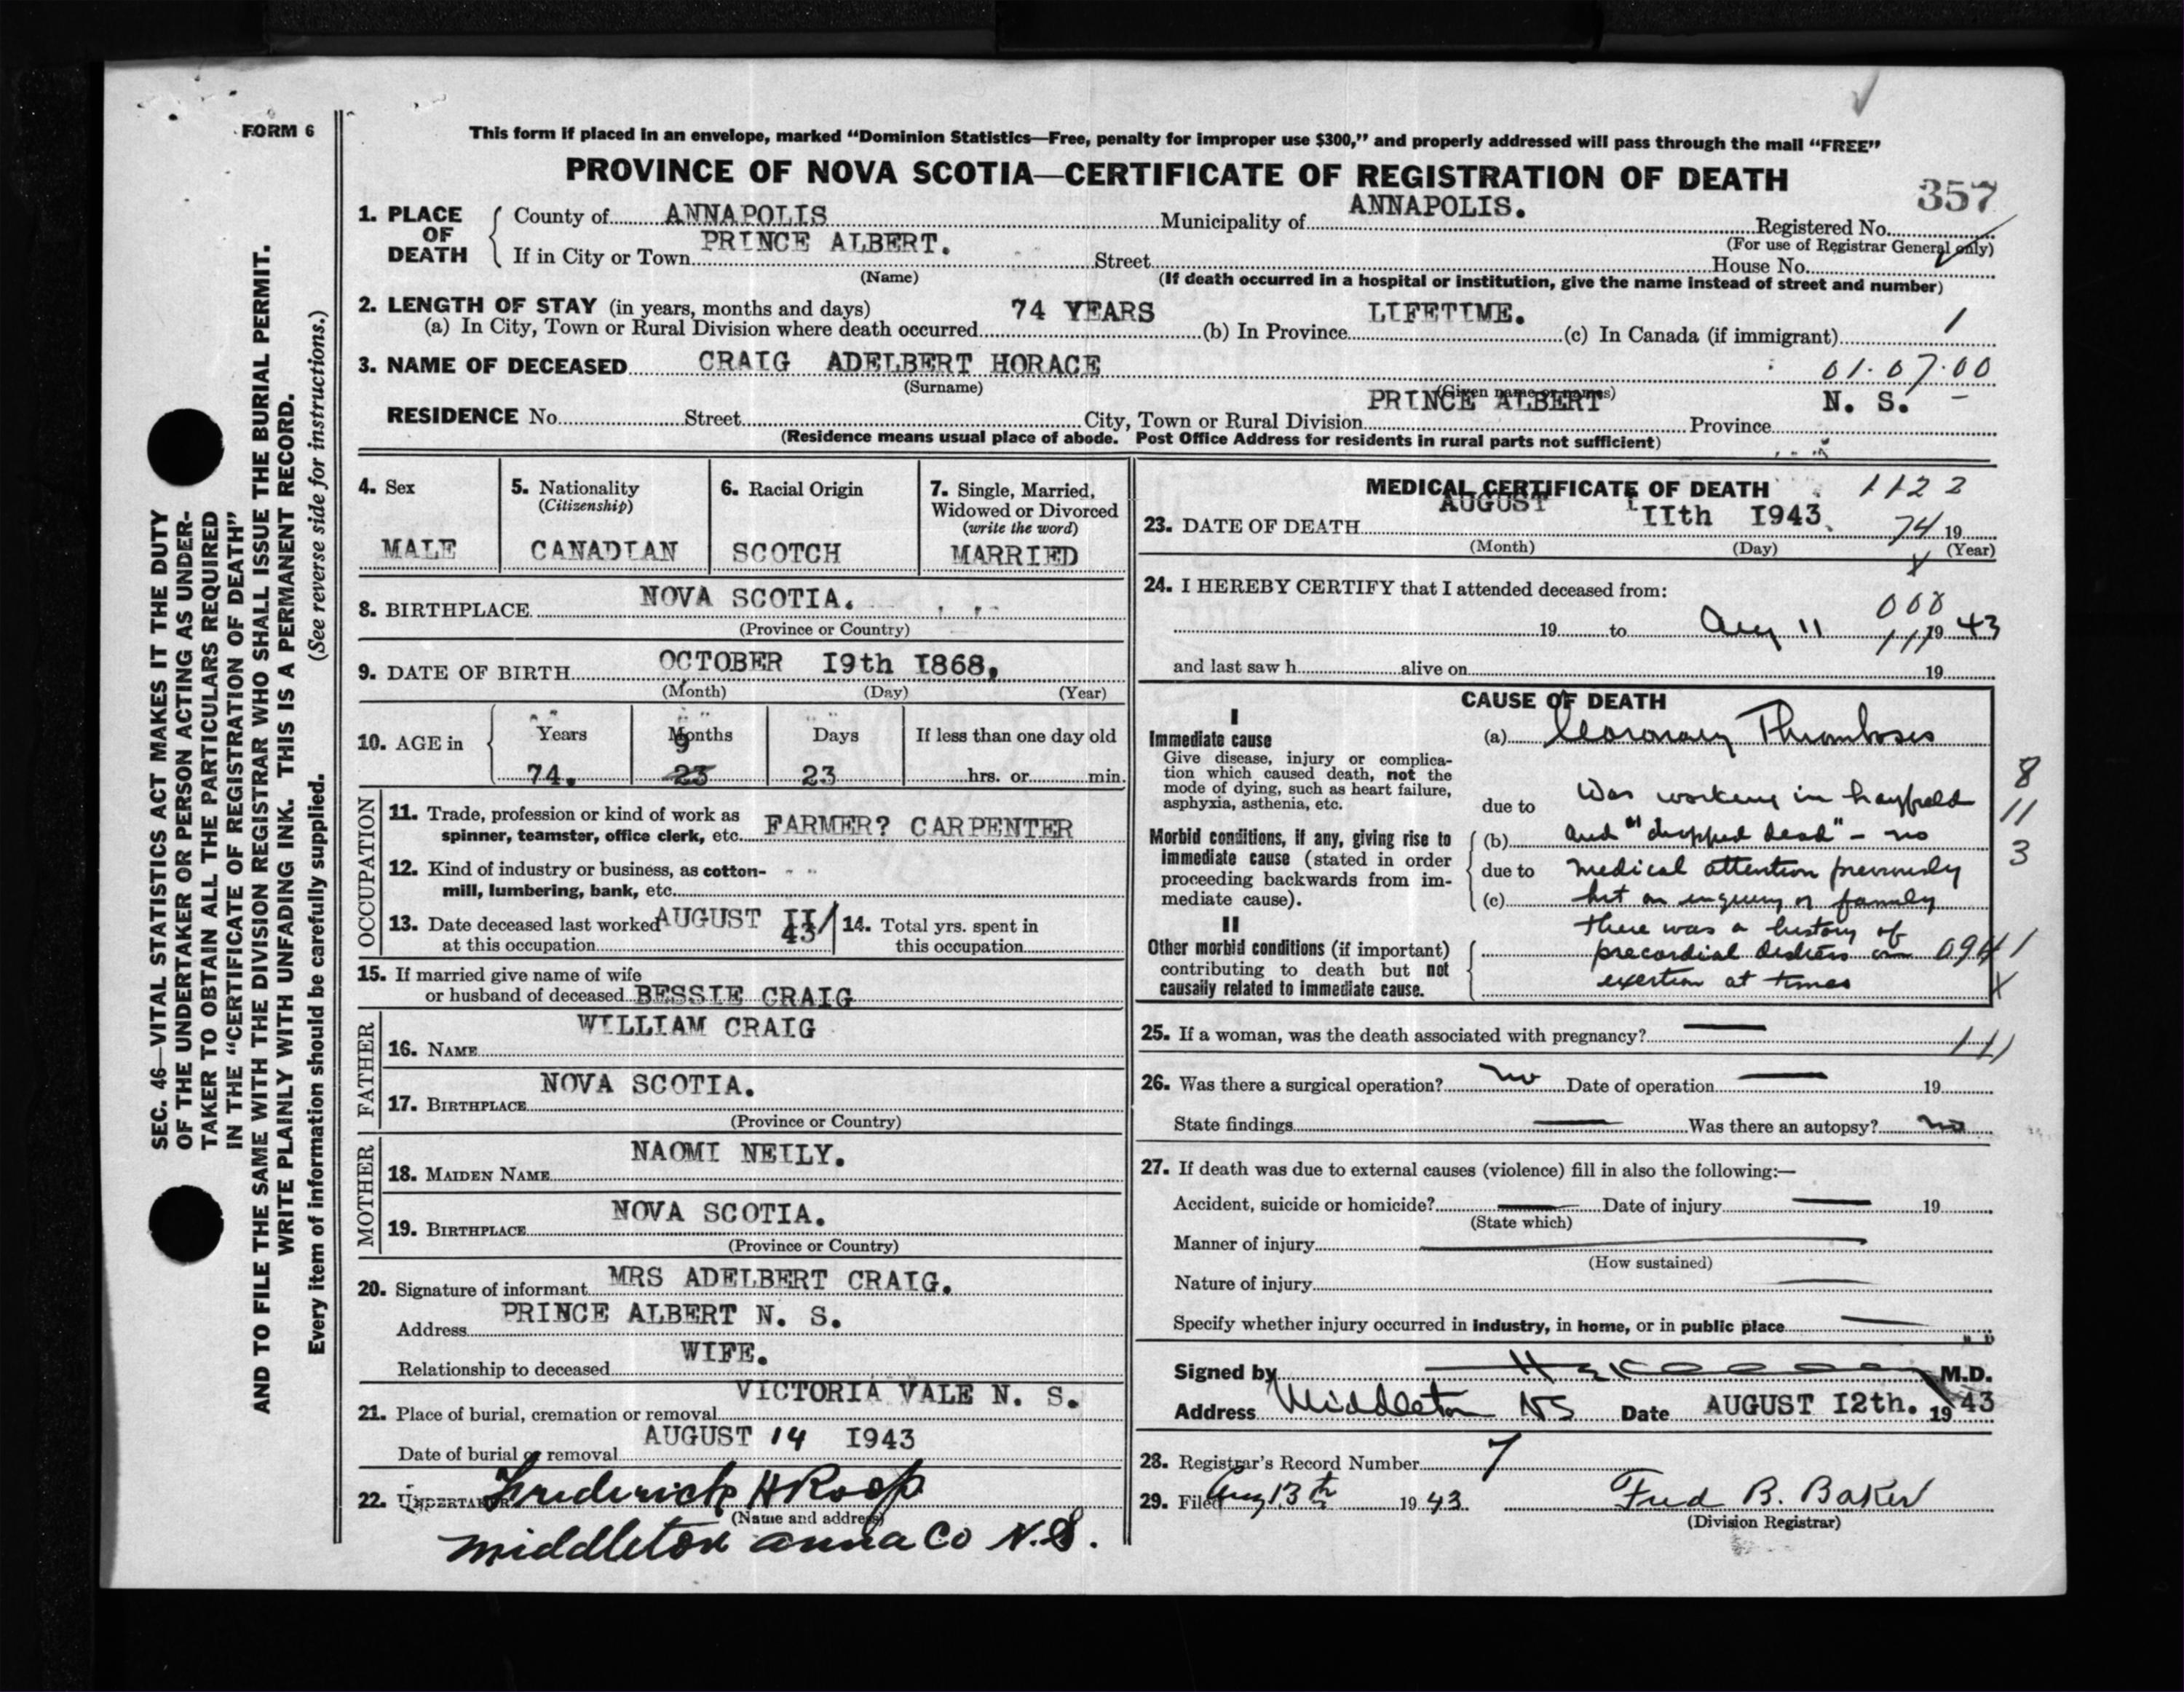 FORM 6
This form if placed in an envelope, marked "Dominion Statistics—Free, penalty for improper use $300," and properly addressed will pass through the mail "FREE"
PROVINCE OF NOVA SCOTIA—CERTIFICATE OF REGISTRATION OF DEATH
357
1. PLACE OF DEATH
County of ANNAPOLIS Municipality of ANNAPOLIS. Registered No.
(For use of Registrar General only)
If in City or Town PRINCE ALBERT. Street House No.
(Name) (If death occurred in a hospital or institution, give the name instead of street and number)
2. LENGTH OF STAY (in years, months and days)
(a) In City, Town or Rural Division where death occurred 74 YEARS (b) In Province LIFETIME. (c) In Canada (if immigrant) 1
3. NAME OF DECEASED CRAIG ADELBERT HORACE 01.07.00
(Surname) (Given name or names)
RESIDENCE No. Street City, Town or Rural Division PRINCE ALBERT Province N. S.
(Residence means usual place of abode. Post Office Address for residents in rural parts not sufficient)
4. Sex
MALE
5. Nationality
(Citizenship)
CANADIAN
6. Racial Origin
SCOTCH
7. Single, Married,
Widowed or Divorced
(write the word)
MARRIED
8. BIRTHPLACE NOVA SCOTIA.
(Province or Country)
9. DATE OF BIRTH OCTOBER I9th I868,
(Month) (Day) (Year)
10. AGE in
Years Months Days If less than one day old
9
74. 23 23 hrs. or min.
OCCUPATION
11. Trade, profession or kind of work as
spinner, teamster, office clerk, etc. FARMER? CARPENTER
12. Kind of industry or business, as cotton-
mill, lumbering, bank, etc. " "
13. Date deceased last worked
at this occupation AUGUST II/43
14. Total yrs. spent in
this occupation
15. If married give name of wife
or husband of deceased BESSIE CRAIG
FATHER
16. NAME WILLIAM CRAIG
17. BIRTHPLACE NOVA SCOTIA.
(Province or Country)
MOTHER
18. MAIDEN NAME NAOMI NEILY.
19. BIRTHPLACE NOVA SCOTIA.
(Province or Country)
20. Signature of informant MRS ADELBERT CRAIG.
Address PRINCE ALBERT N. S.
Relationship to deceased WIFE.
21. Place of burial, cremation or removal VICTORIA VALE N. S.
Date of burial or removal AUGUST 14 I943
22. UNDERTAKER Frederick H Roop
(Name and address)
Middleton anna Co N.S.
MEDICAL CERTIFICATE OF DEATH 1122
23. DATE OF DEATH AUGUST IIth I943. 74 19
(Month) (Day) (Year)
24. I HEREBY CERTIFY that I attended deceased from:
008
19 to Aug 11 19 43
and last saw h alive on 19
CAUSE OF DEATH
I
Immediate cause
Give disease, injury or complica-
tion which caused death, not the
mode of dying, such as heart failure,
asphyxia, asthenia, etc.
Morbid conditions, if any, giving rise to
immediate cause (stated in order
proceeding backwards from im-
mediate cause).
II
Other morbid conditions (if important)
contributing to death but not
causally related to immediate cause.
(a) Coronary Thrombosis
due to Was working in hayfield
(b) and "dropped dead" - no
due to medical attention previously
(c) but on inquiry of family
there was a history of
precordial distress on
exertion at times
8
11
3
094 1
X
25. If a woman, was the death associated with pregnancy? —
111
26. Was there a surgical operation? no Date of operation — 19
State findings — Was there an autopsy? no
27. If death was due to external causes (violence) fill in also the following:—
Accident, suicide or homicide? — Date of injury — 19
(State which)
Manner of injury —
(How sustained)
Nature of injury —
Specify whether injury occurred in industry, in home, or in public place —
Signed by M.D.
Address Middleton NS Date AUGUST I2th. 19 43
28. Registrar's Record Number 7
29. Filed Aug 13th 19 43. Fred B. Baker
(Division Registrar)
SEC. 46—VITAL STATISTICS ACT MAKES IT THE DUTY
OF THE UNDERTAKER OR PERSON ACTING AS UNDER-
TAKER TO OBTAIN ALL THE PARTICULARS REQUIRED
IN THE "CERTIFICATE OF REGISTRATION OF DEATH"
AND TO FILE THE SAME WITH THE DIVISION REGISTRAR WHO SHALL ISSUE THE BURIAL PERMIT.
WRITE PLAINLY WITH UNFADING INK. THIS IS A PERMANENT RECORD.
Every item of information should be carefully supplied. (See reverse side for instructions.)